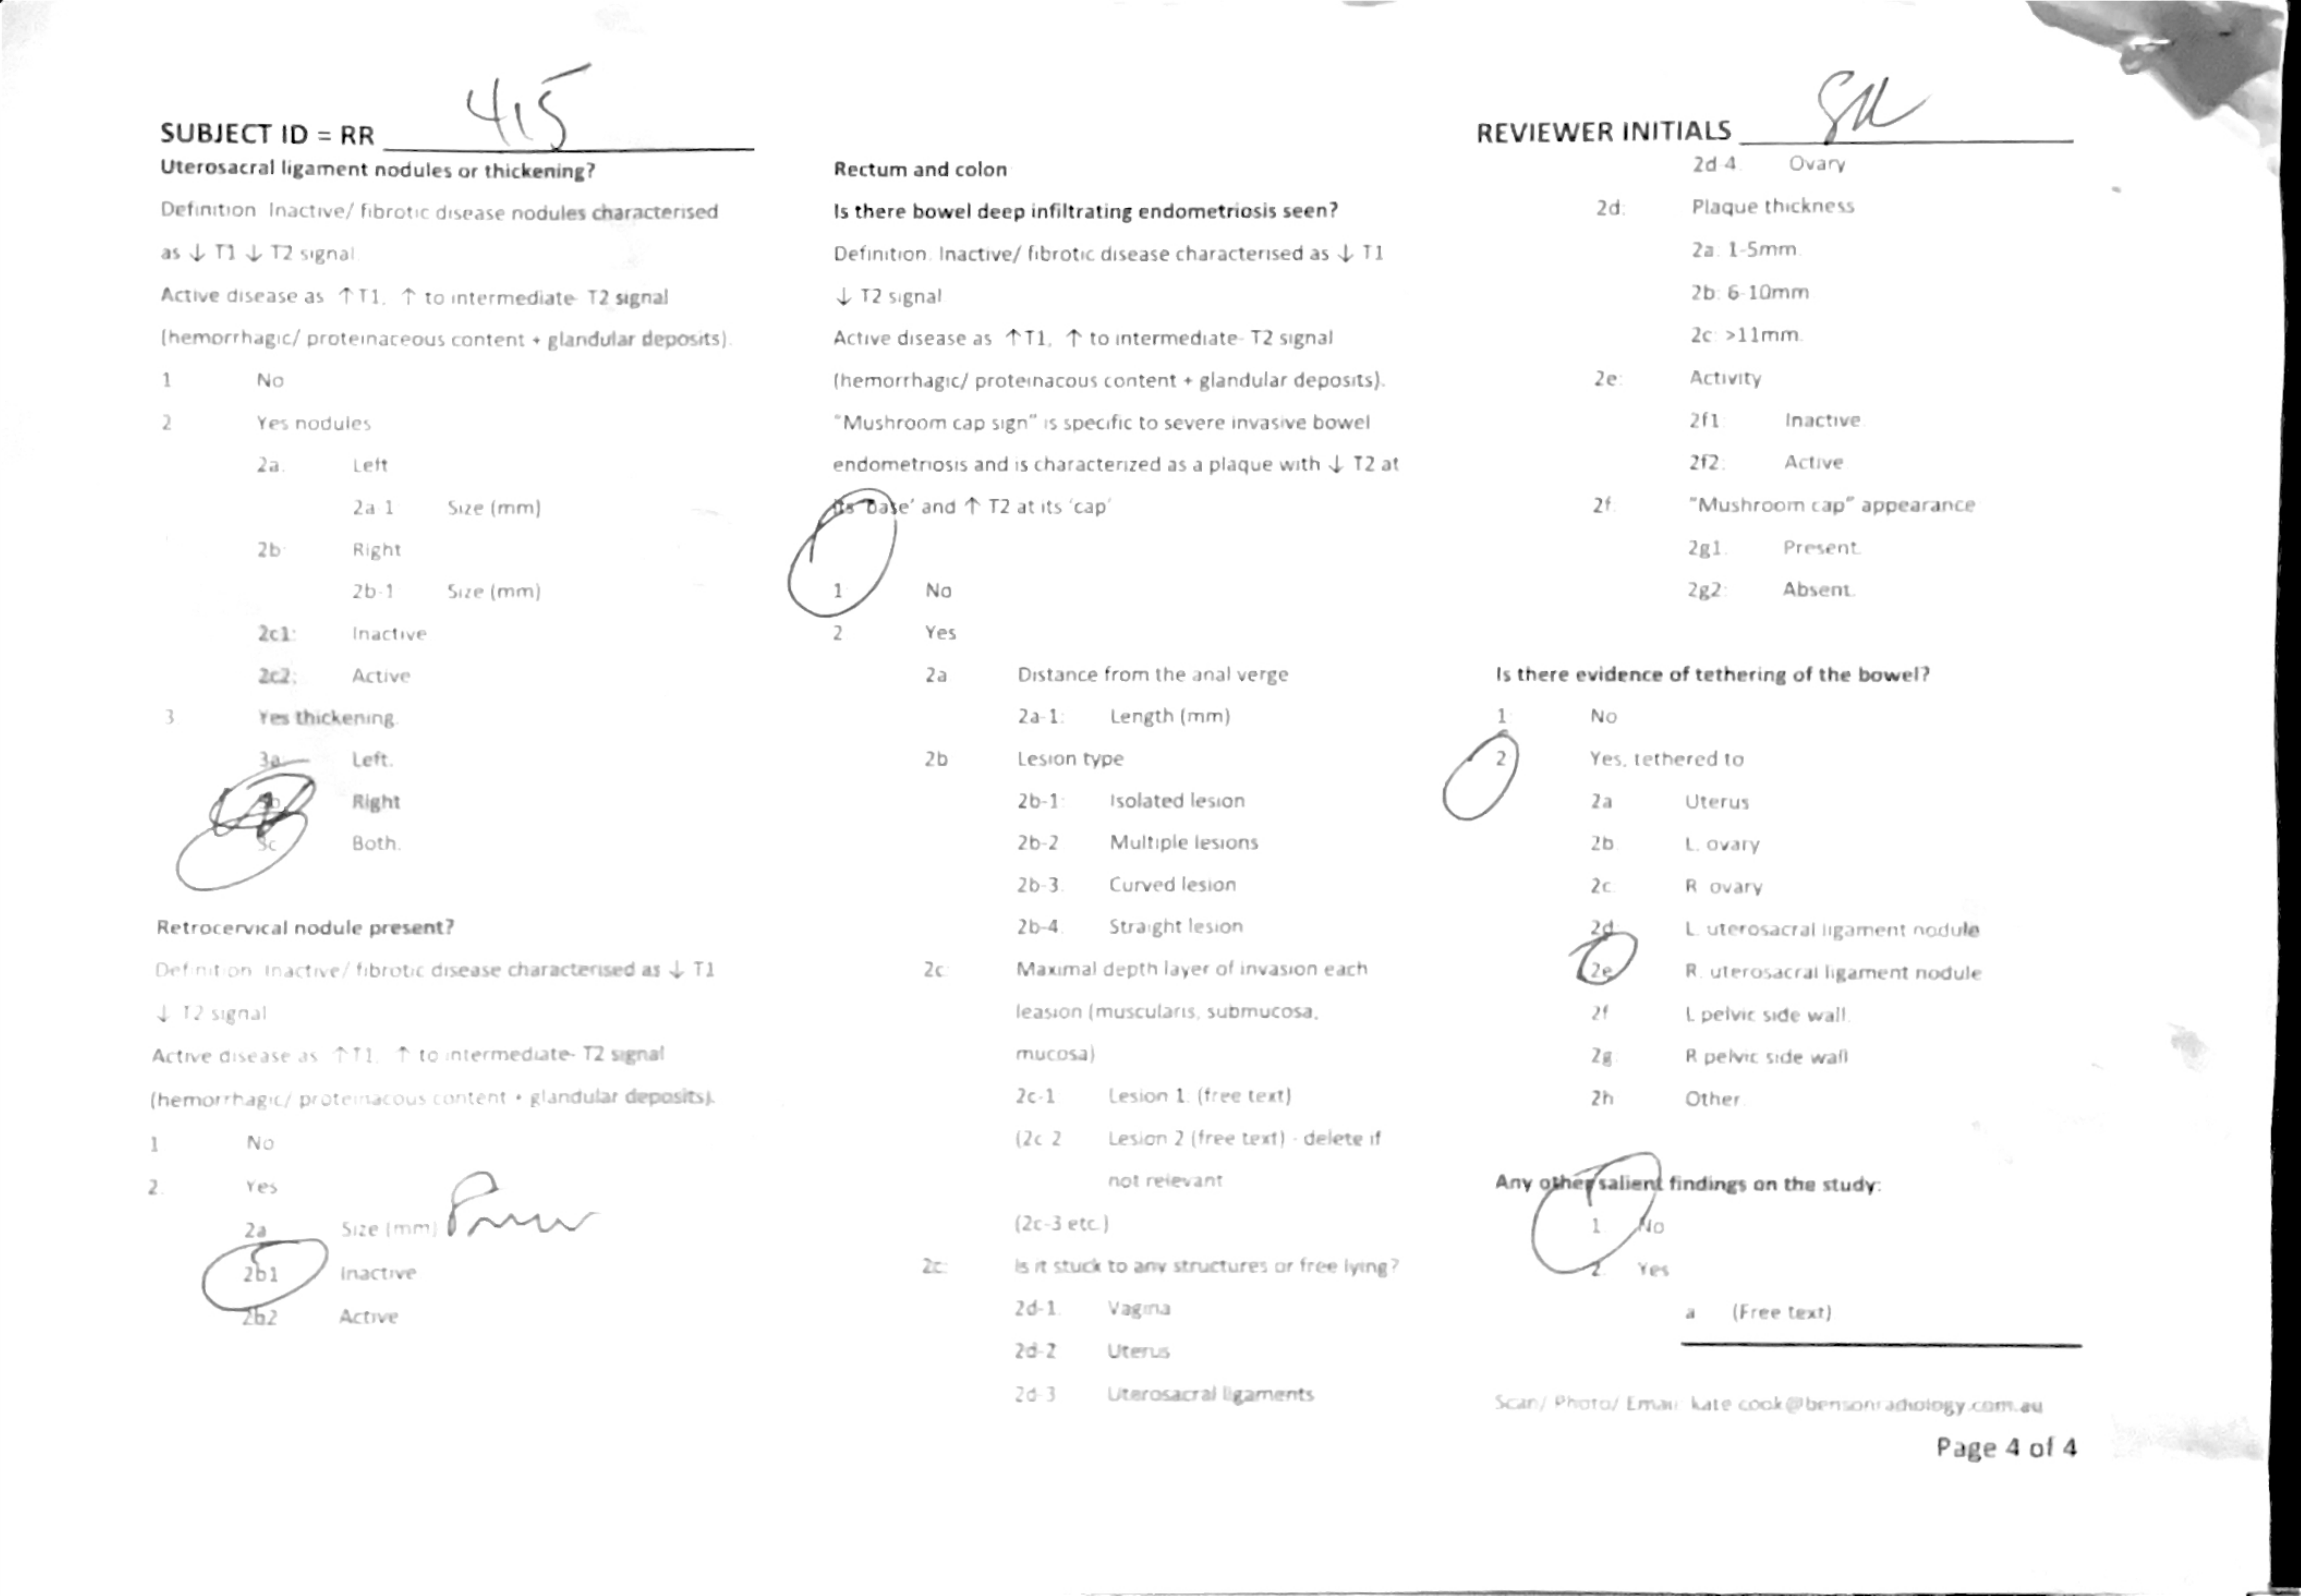 SUBJECT ID = RR 415
REVIEWER INITIALS
Uterosacral ligament nodules or thickening?
Definition Inactive/ fibrotic disease nodules characterised
as ↓ T1 ↓ T2 signal
Active disease as ↑T1, ↑ to intermediate- T2 signal
(hemorrhagic/ proteinaceous content + glandular deposits).
1 No
2 Yes nodules
2a. Left
2a-1 Size (mm)
2b: Right
2b-1 Size (mm)
2c1: Inactive
2c2: Active
3 Yes thickening.
3a. Left.
3b Right
3c Both.
Retrocervical nodule present?
Definition Inactive/ fibrotic disease characterised as ↓ T1
↓ T2 signal
Active disease as ↑T1, ↑ to intermediate- T2 signal
(hemorrhagic/ proteinacous content + glandular deposits).
1 No
2. Yes
2a Size (mm)
2b1 Inactive
2b2 Active
Rectum and colon
Is there bowel deep infiltrating endometriosis seen?
Definition. Inactive/ fibrotic disease characterised as ↓ T1
↓ T2 signal
Active disease as ↑T1, ↑ to intermediate- T2 signal
(hemorrhagic/ proteinacous content + glandular deposits).
"Mushroom cap sign" is specific to severe invasive bowel
endometriosis and is characterized as a plaque with ↓ T2 at
its 'base' and ↑ T2 at its 'cap'
1 No
2 Yes
2a Distance from the anal verge
2a-1: Length (mm)
2b Lesion type
2b-1: Isolated lesion
2b-2 Multiple lesions
2b-3. Curved lesion
2b-4. Straight lesion
2c: Maximal depth layer of invasion each
leasion (muscularis, submucosa,
mucosa)
2c-1 Lesion 1. (free text)
(2c 2 Lesion 2 (free text) - delete if
not relevant
(2c-3 etc.)
2c: Is it stuck to any structures or free lying?
2d-1. Vagina
2d-2 Uterus
2d-3 Uterosacral ligaments
2d 4. Ovary
2d: Plaque thickness
2a. 1-5mm.
2b: 6-10mm
2c: >11mm.
2e: Activity
2f1: Inactive
2f2: Active
2f. "Mushroom cap" appearance
2g1. Present.
2g2: Absent.
Is there evidence of tethering of the bowel?
1: No
2 Yes, tethered to
2a Uterus
2b. L. ovary
2c. R ovary
2d L. uterosacral ligament nodule
2e R. uterosacral ligament nodule
2f L pelvic side wall.
2g: R pelvic side wall
2h Other
Any other salient findings on the study:
1. No
2. Yes
a (Free text)
Scan/ Photo/ Email kate cook@bensonradiology.com.au
Page 4 of 4